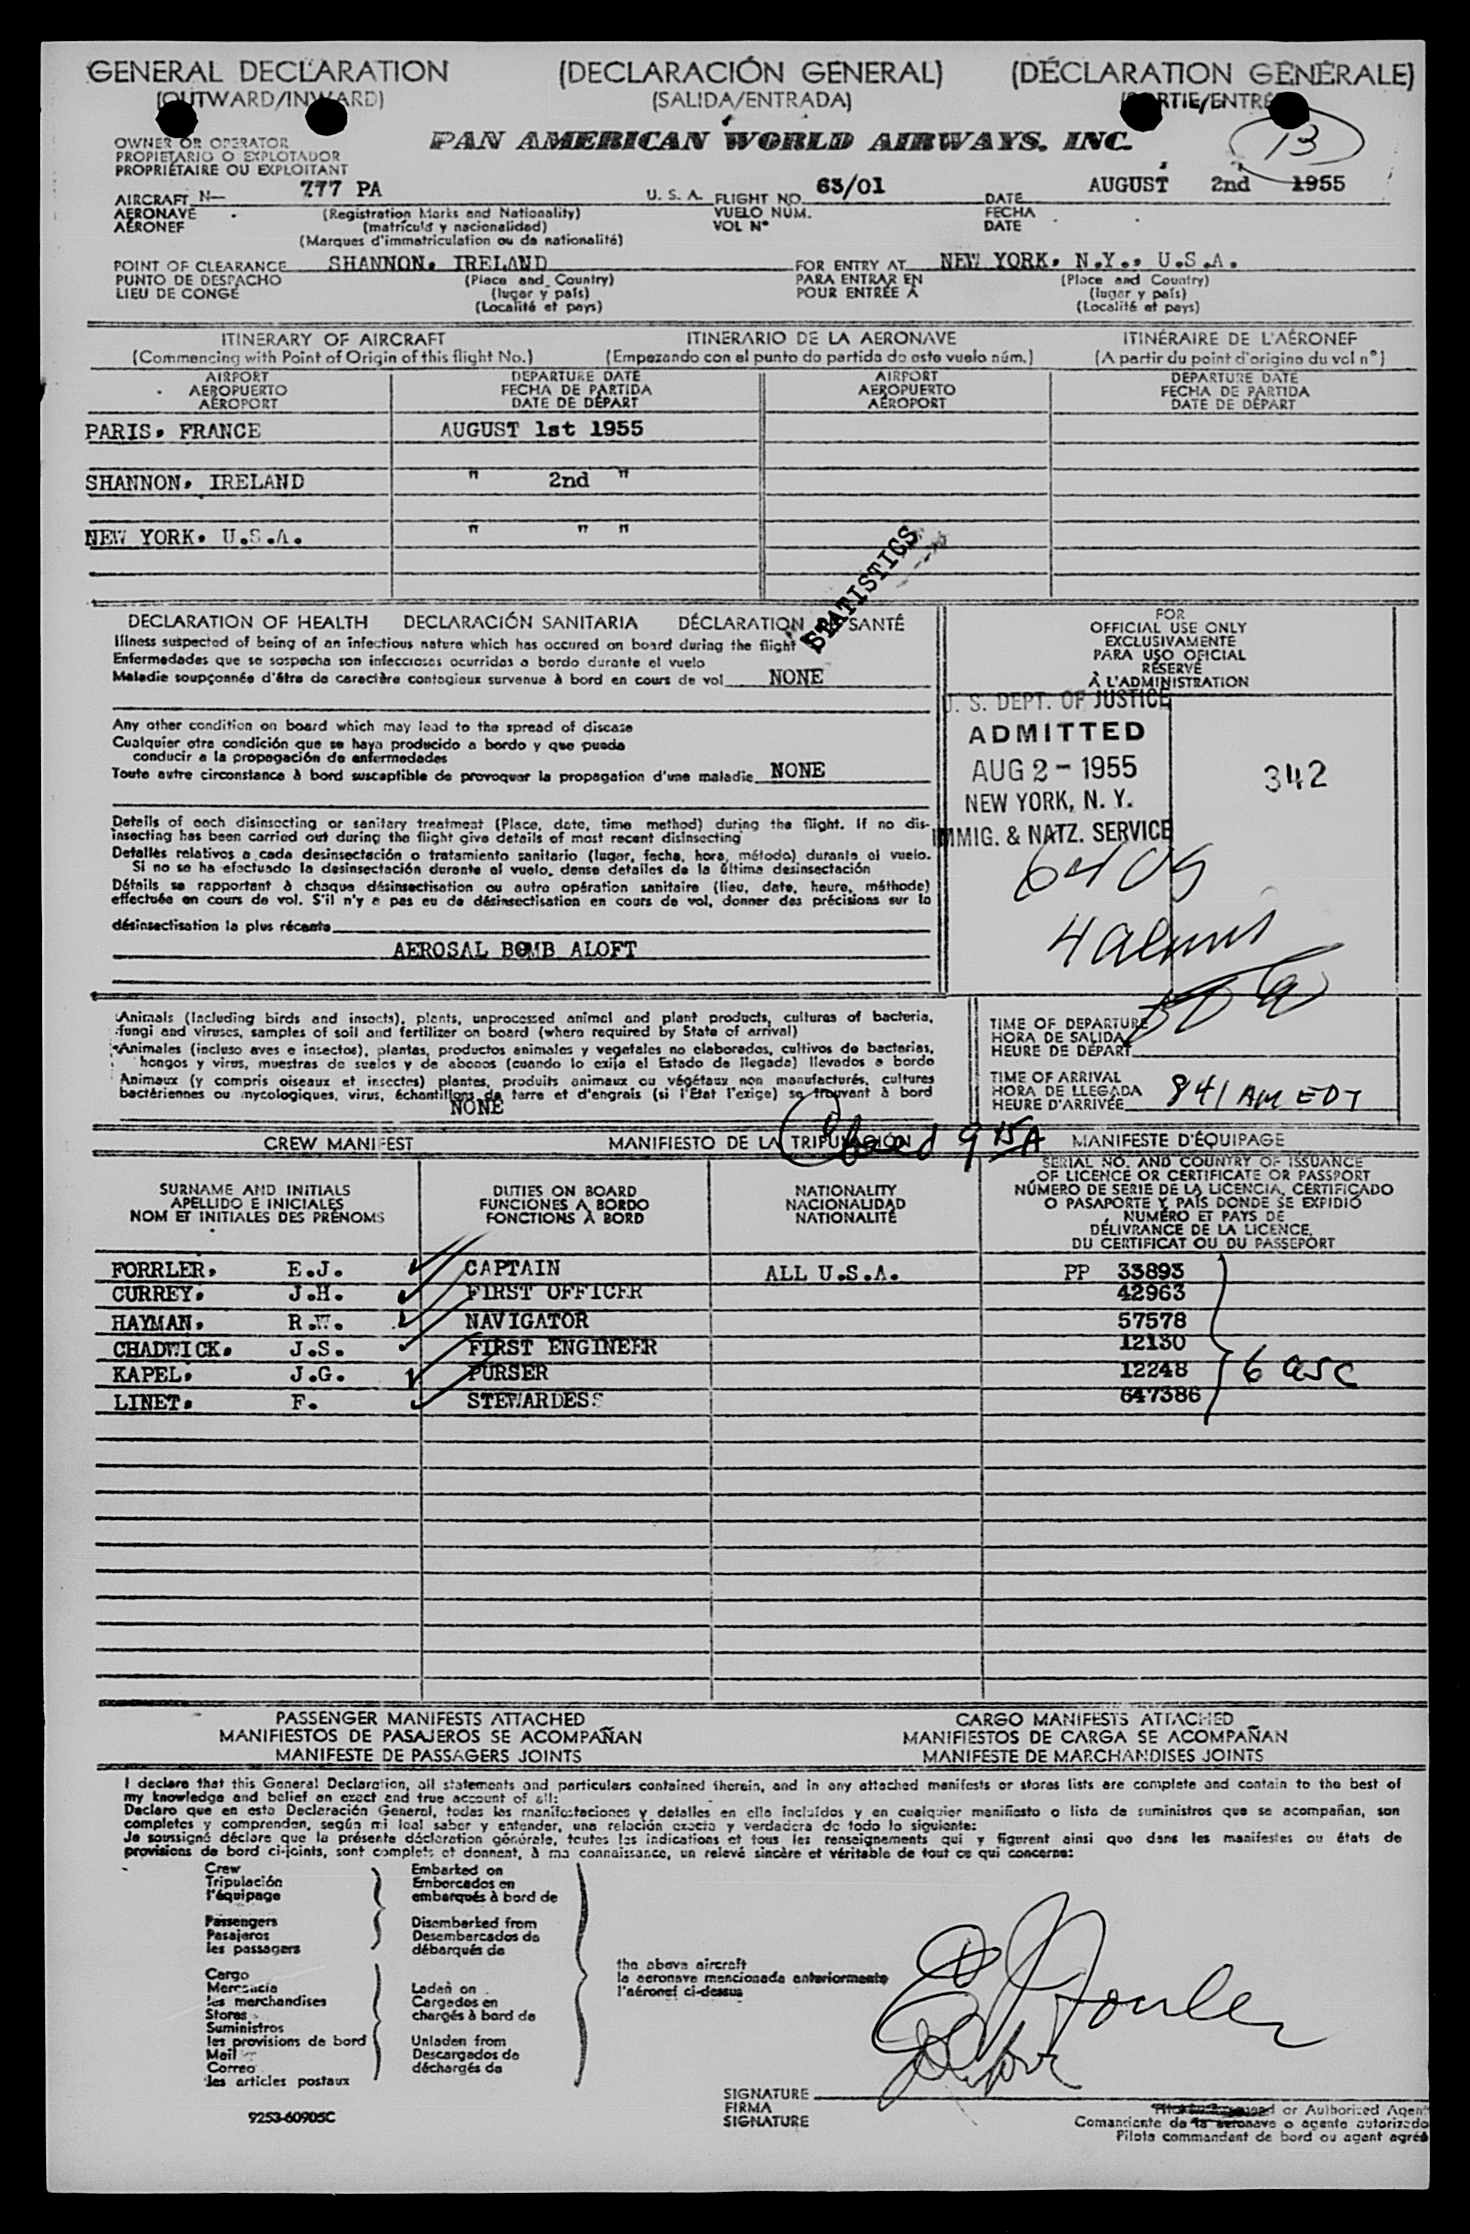 GENERAL DECLARATION (DECLARACIÓN GENERAL) (DÉCLARATION GÉNÉRALE)
(OUTWARD/INWARD) (SALIDA/ENTRADA)
13
OWNER OR OPERATOR
PROPIETARIO O EXPLOTADOR
PROPRIÉTAIRE OU EXPLOITANT
PAN AMERICAN WORLD AIRWAYS, INC.
AIRCRAFT N— 777 PA U. S. A. FLIGHT NO. 63/01 DATE AUGUST 2nd 1955
AERONAVE (Registration Marks and Nationality) VUELO NUM. FECHA
AÉRONEF (matrícula y nacionalidad) VOL N° DATE
(Marques d'immatriculation ou de nationalité)
POINT OF CLEARANCE SHANNON, IRELAND FOR ENTRY AT NEW YORK, N.Y., U.S.A.
PUNTO DE DESPACHO (Place and Country) PARA ENTRAR EN (Place and Country)
LIEU DE CONGÉ (lugar y país) POUR ENTRÉE À (lugar y país)
(Localité et pays) (Localité et pays)
ITINERARY OF AIRCRAFT ITINERARIO DE LA AERONAVE ITINÉRAIRE DE L'AÉRONEF
(Commencing with Point of Origin of this flight No.) (Empezando con el punto do partida do este vuelo núm.) (A partir du point d'origine du vol n°)
AIRPORT DEPARTURE DATE AIRPORT DEPARTURE DATE
AEROPUERTO FECHA DE PARTIDA AEROPUERTO FECHA DE PARTIDA
AÉROPORT DATE DE DÉPART AÉROPORT DATE DE DÉPART
PARIS, FRANCE AUGUST 1st 1955
SHANNON, IRELAND " 2nd "
NEW YORK, U.S.A. " " "
STATISTICS
DECLARATION OF HEALTH DECLARACIÓN SANITARIA DÉCLARATION SANTÉ
Illness suspected of being of an infectious nature which has occured on board during the flight
Enfermedades que se sospecha son infecciosas ocurridas a bordo durante el vuelo
Maladie soupçonnée d'être de caractère contagieux survenue à bord en cours de vol NONE
Any other condition on board which may lead to the spread of disease
Cualquier otra condición que se haya producido a bordo y que pueda
conducir a la propagación de enfermedades
Toute autre circonstance à bord susceptible de provoquer la propagation d'une maladie NONE
Details of each disinsecting or sanitary treatment (Place, date, time method) during the flight. If no dis-
insecting has been carried out during the flight give details of most recent disinsecting
Detalles relativos a cada desinsectación o tratamiento sanitario (lugar, fecha, hora, método) durante el vuelo.
Si no se ha efectuado la desinsectación durante el vuelo, dense detalles de la última desinsectación
Détails se rapportant à chaque désinsectisation ou autre opération sanitaire (lieu, date, heure, méthode)
effectuée en cours de vol. S'il n'y a pas eu de désinsectisation en cours de vol, donner des précisions sur la
désinsectisation la plus récente
AEROSAL BOMB ALOFT
FOR
OFFICIAL USE ONLY
EXCLUSIVAMENTE
PARA USO OFICIAL
RÉSERVÉ
À L'ADMINISTRATION
U. S. DEPT. OF JUSTICE
ADMITTED
AUG 2 - 1955
NEW YORK, N. Y.
IMMIG. & NATZ. SERVICE
342
4 aliens
Animals (including birds and insects), plants, unprocessed animal and plant products, cultures of bacteria,
fungi and viruses, samples of soil and fertilizer on board (where required by State of arrival)
Animales (incluso aves e insectos), plantas, productos animales y vegetales no elaborados, cultivos de bacterias,
hongos y virus, muestras de suelos y de abonos (cuando lo exija el Estado de llegada) llevados a bordo
Animaux (y compris oiseaux et insectes) plantes, produits animaux ou végétaux non manufacturés, cultures
bactériennes ou mycologiques, virus, échantillons de terre et d'engrais (si l'État l'exige) se trouvant à bord
NONE
TIME OF DEPARTURE
HORA DE SALIDA
HEURE DE DÉPART
TIME OF ARRIVAL
HORA DE LLEGADA
HEURE D'ARRIVÉE 841 AM EDT
CREW MANIFEST MANIFIESTO DE LA TRIPULACIÓN MANIFESTE D'ÉQUIPAGE
9 15 A
SURNAME AND INITIALS
APELLIDO E INICIALES
NOM ET INITIALES DES PRÉNOMS
DUTIES ON BOARD
FUNCIONES A BORDO
FONCTIONS À BORD
NATIONALITY
NACIONALIDAD
NATIONALITÉ
SERIAL NO. AND COUNTRY OF ISSUANCE
OF LICENCE OR CERTIFICATE OR PASSPORT
NÚMERO DE SERIE DE LA LICENCIA, CERTIFICADO
O PASAPORTE Y PAÍS DONDE SE EXPIDIÓ
NUMÉRO ET PAYS DE
DÉLIVRANCE DE LA LICENCE,
DU CERTIFICAT OU DU PASSEPORT
FORRLER, E.J. CAPTAIN ALL U.S.A. PP 33893
CURREY, J.H. FIRST OFFICER 42963
HAYMAN, R.W. NAVIGATOR 57578
CHADWICK, J.S. FIRST ENGINEER 12130
KAPEL, J.G. PURSER 12248
LINET, F. STEWARDESS 647386
6 USC
PASSENGER MANIFESTS ATTACHED CARGO MANIFESTS ATTACHED
MANIFIESTOS DE PASAJEROS SE ACOMPAÑAN MANIFIESTOS DE CARGA SE ACOMPAÑAN
MANIFESTE DE PASSAGERS JOINTS MANIFESTE DE MARCHANDISES JOINTS
I declare that this General Declaration, all statements and particulars contained therein, and in any attached manifests or stores lists are complete and contain to the best of
my knowledge and belief an exact and true account of all:
Declaro que en esta Declaración General, todas las manifestaciones y detalles en ella incluídos y en cualquier manifiesto o lista de suministros que se acompañan, son
completos y comprenden, según mi leal saber y entender, una relación exacta y verdadera de todo lo siguiente:
Je soussigné déclare que la présente déclaration générale, toutes les indications et tous les renseignements qui y figurent ainsi que dans les manifestes ou états de
provisions de bord ci-joints, sont complets et donnent, à ma connaissance, un relevé sincère et véritable de tout ce qui concerne:
Crew
Tripulación
l'équipage
Passengers
Pasajeros
les passagers
Cargo
Mercancía
les marchandises
Stores
Suministros
les provisions de bord
Mail
Correo
les articles postaux
Embarked on
Embarcados en
embarqués à bord de
Disembarked from
Desembarcados de
débarqués de
Laden on
Cargados en
chargés à bord de
Unladen from
Descargados de
déchargés de
the above aircraft
la aeronave mencionada anteriormente
l'aéronef ci-dessus
SIGNATURE
FIRMA
SIGNATURE
or Authorized Agent
Comandante de la aeronave o agente autorizado
Pilote commandant de bord ou agent agréé
9253-60905C